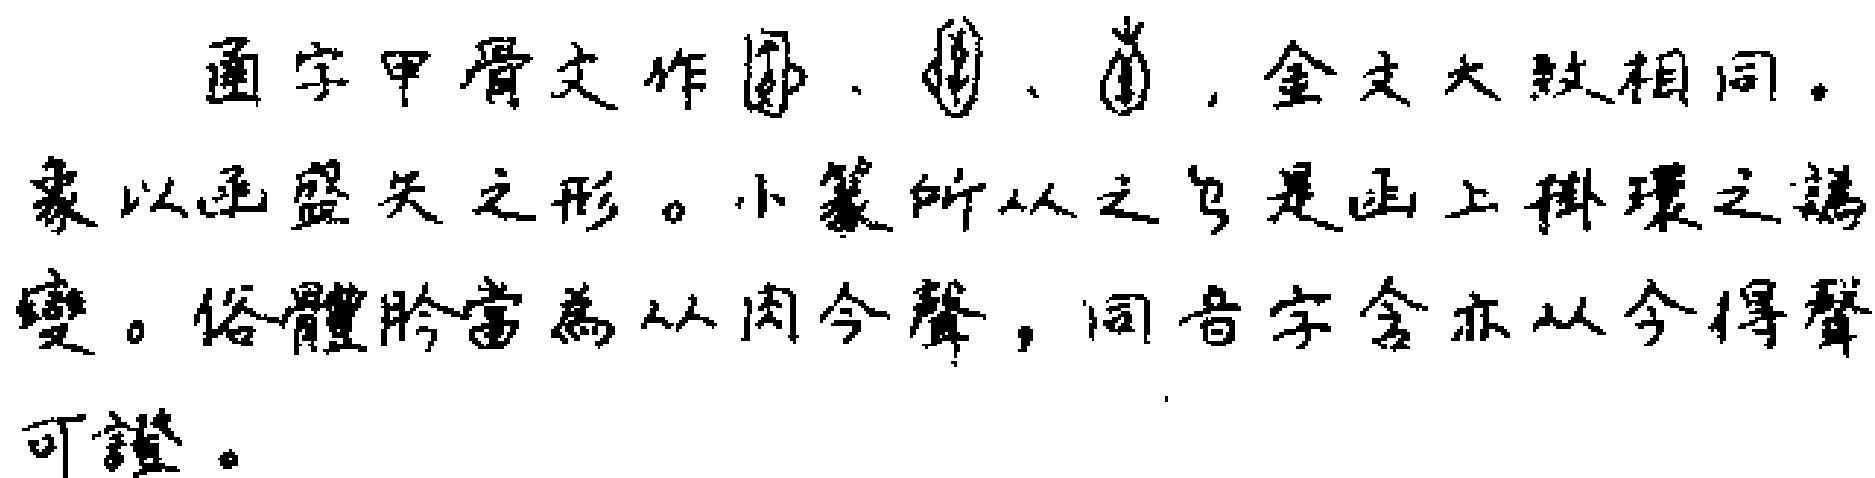 圅字甲骨文作、、,金文大致相同.
象以函盛矢之形。小篆所从之㔾是函上掛環之譌
變。俗體肣當為从肉今聲,同音字含亦从今得聲
可證。